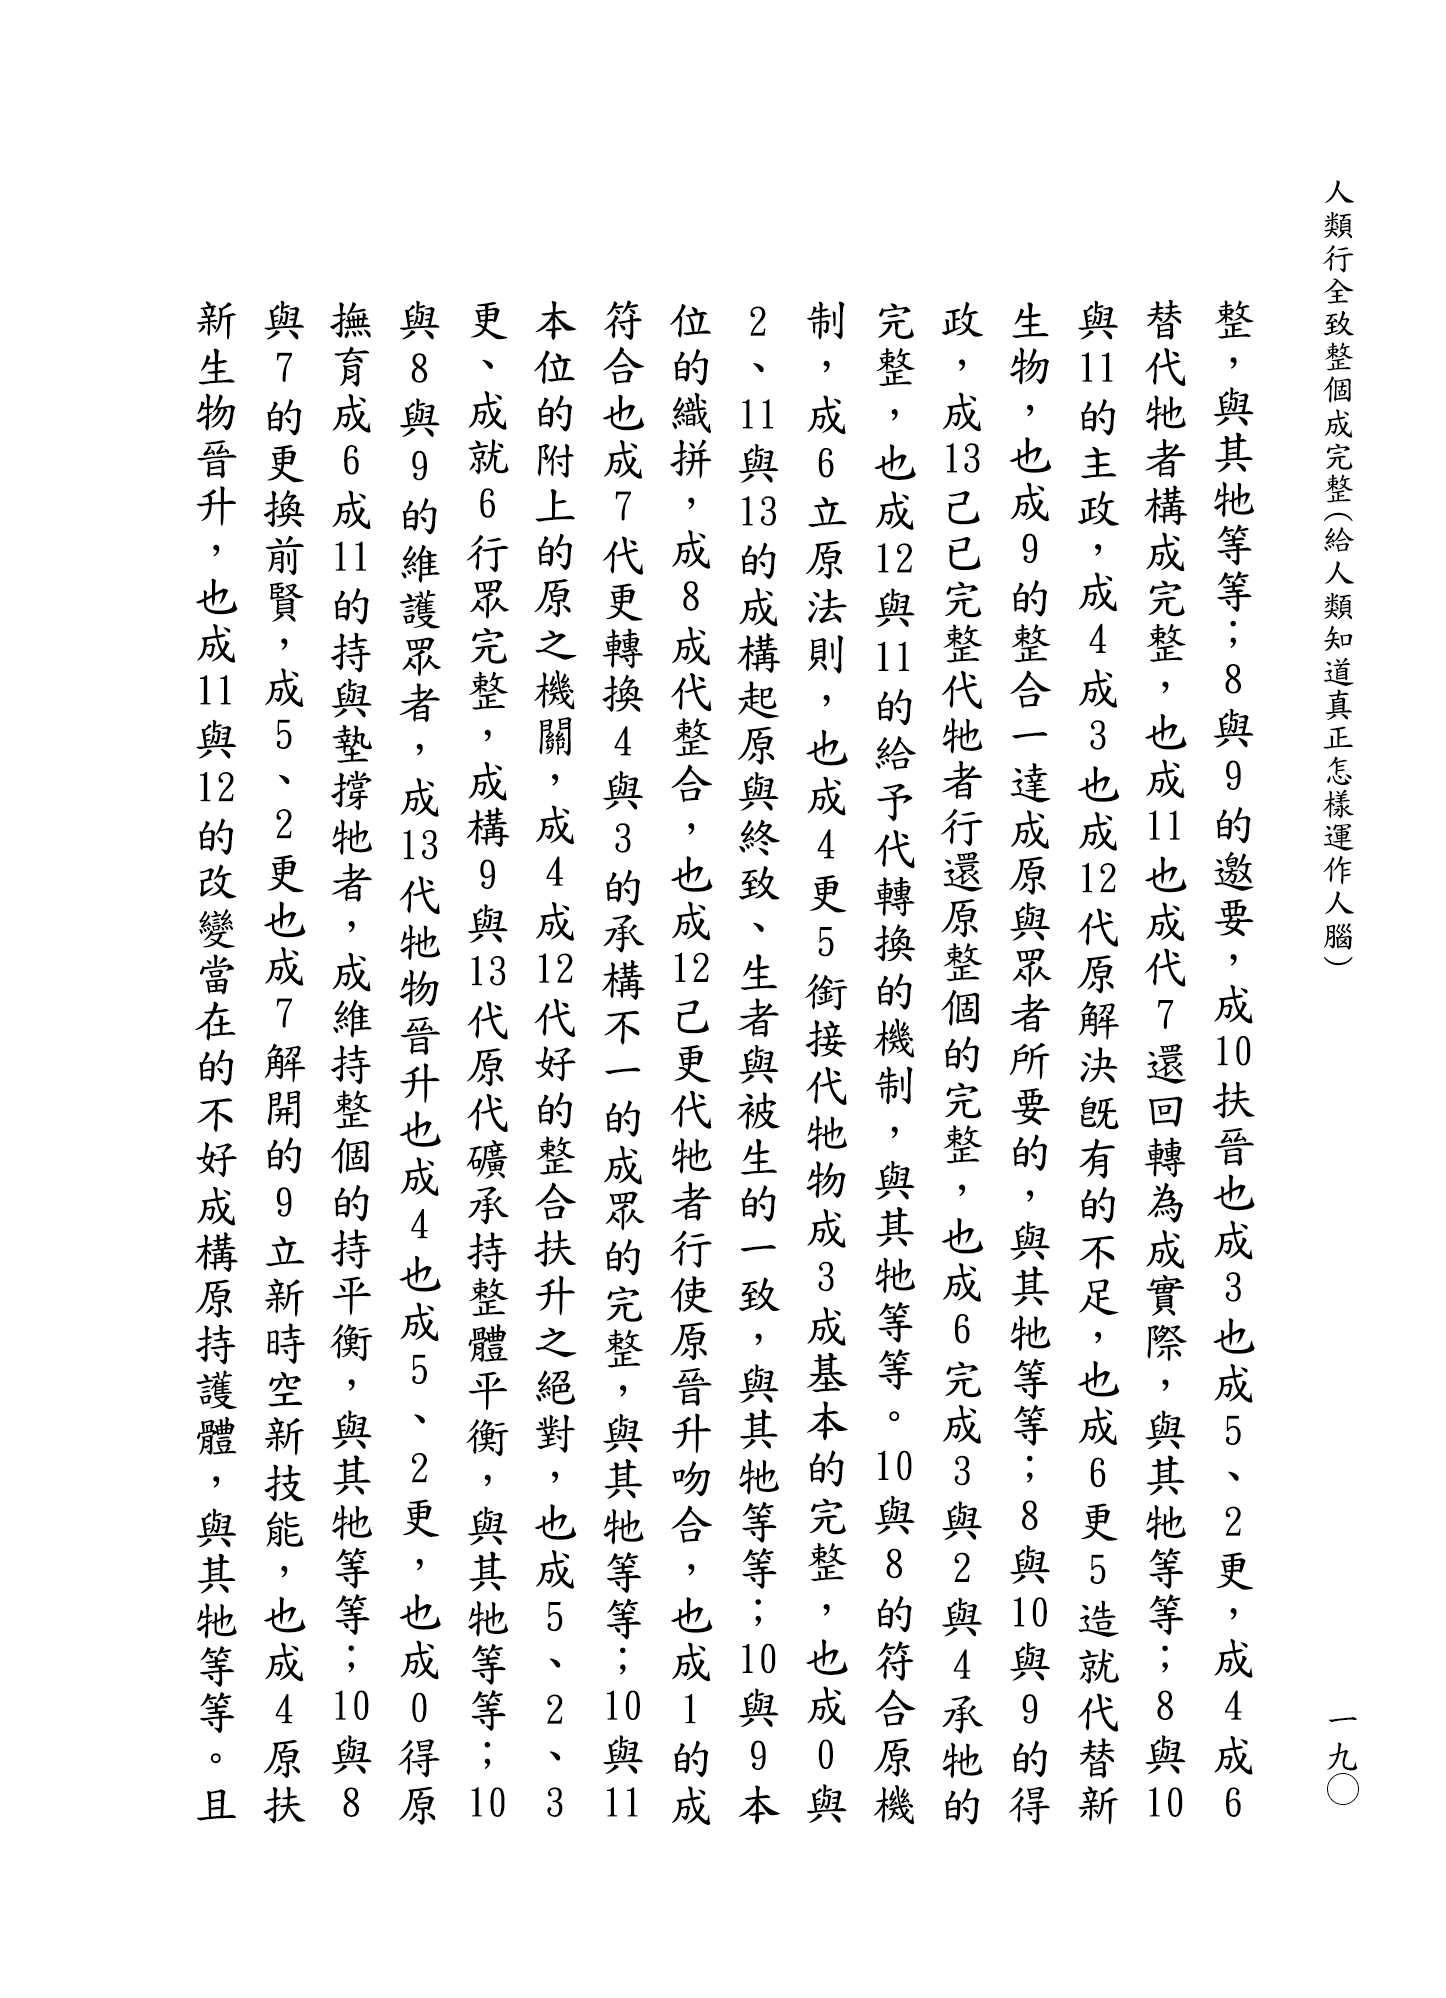 人類行全致整個成完整(給人類知道真正怎樣運作人腦)
一九〇
整，與其牠等等；8與9的邀要，成10扶晉也成3也成5、2更，成4成6
替代牠者構成完整，也成11也成代7還回轉為成實際，與其牠等等；8與10
與11的主政，成4成3也成12代原解決既有的不足，也成6更5造就代替新
生物，也成9的整合一達成原與眾者所要的，與其牠等等；8與10與9的得
政，成13己已完整代牠者行還原整個的完整，也成6完成3與2與4承牠的
完整，也成12與11的給予代轉換的機制，與其牠等等。10與8的符合原機
制，成6立原法則，也成4更5銜接代牠物成3成基本的完整，也成0與
2、11與13的成構起原與終致、生者與被生的一致，與其牠等等；10與9本
位的織拼，成8成代整合，也成12己更代牠者行使原晉升吻合，也成1的成
符合也成7代更轉換4與3的承構不一的成眾的完整，與其牠等等；10與11
本位的附上的原之機關，成4成12代好的整合扶升之絕對，也成5、2、3
更、成就6行眾完整，成構9與13代原代礦承持整體平衡，與其牠等等；10
與8與9的維護眾者，成13代牠物晉升也成4也成5、2更，也成0得原
撫育成6成11的持與墊撐牠者，成維持整個的持平衡，與其牠等等；10與8
與7的更換前賢，成5、2更也成7解開的9立新時空新技能，也成4原扶
新生物晉升，也成11與12的改變當在的不好成構原持護體，與其牠等等。且